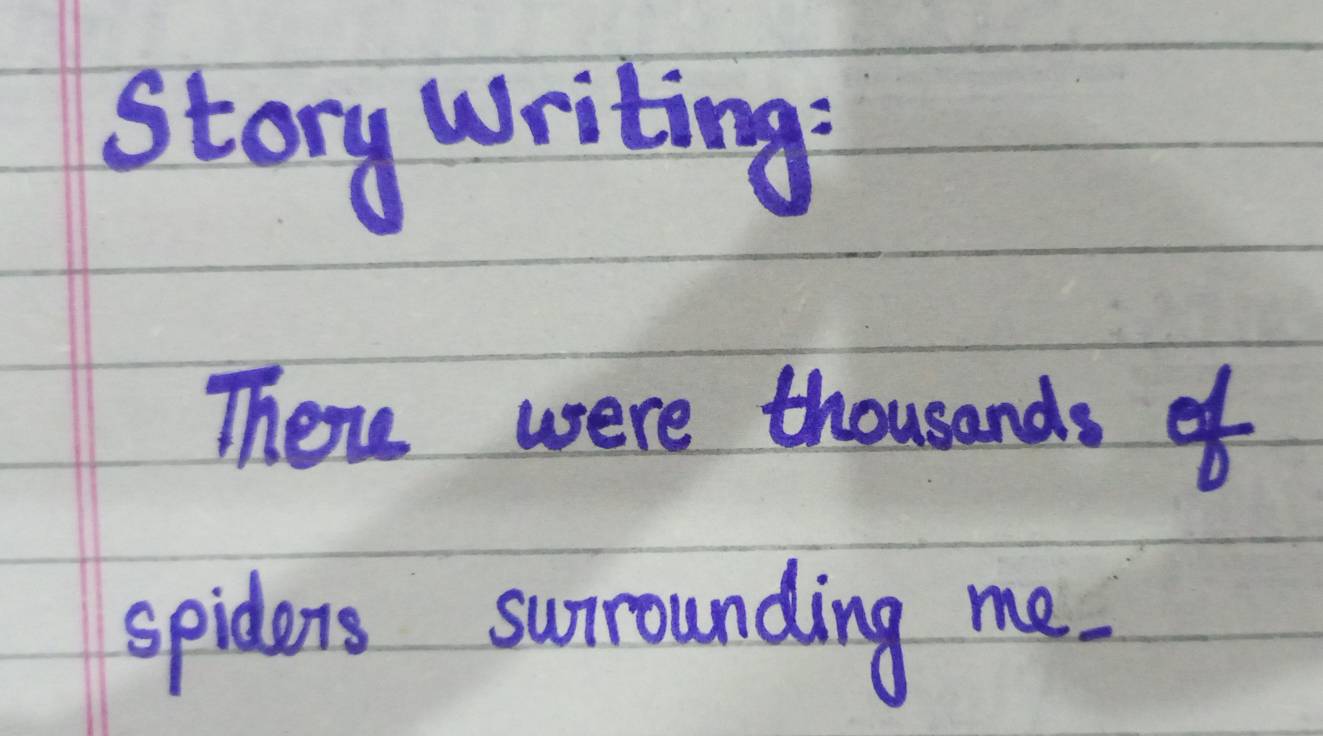 Story Writing:
There were thousands of
spiders surrounding me-